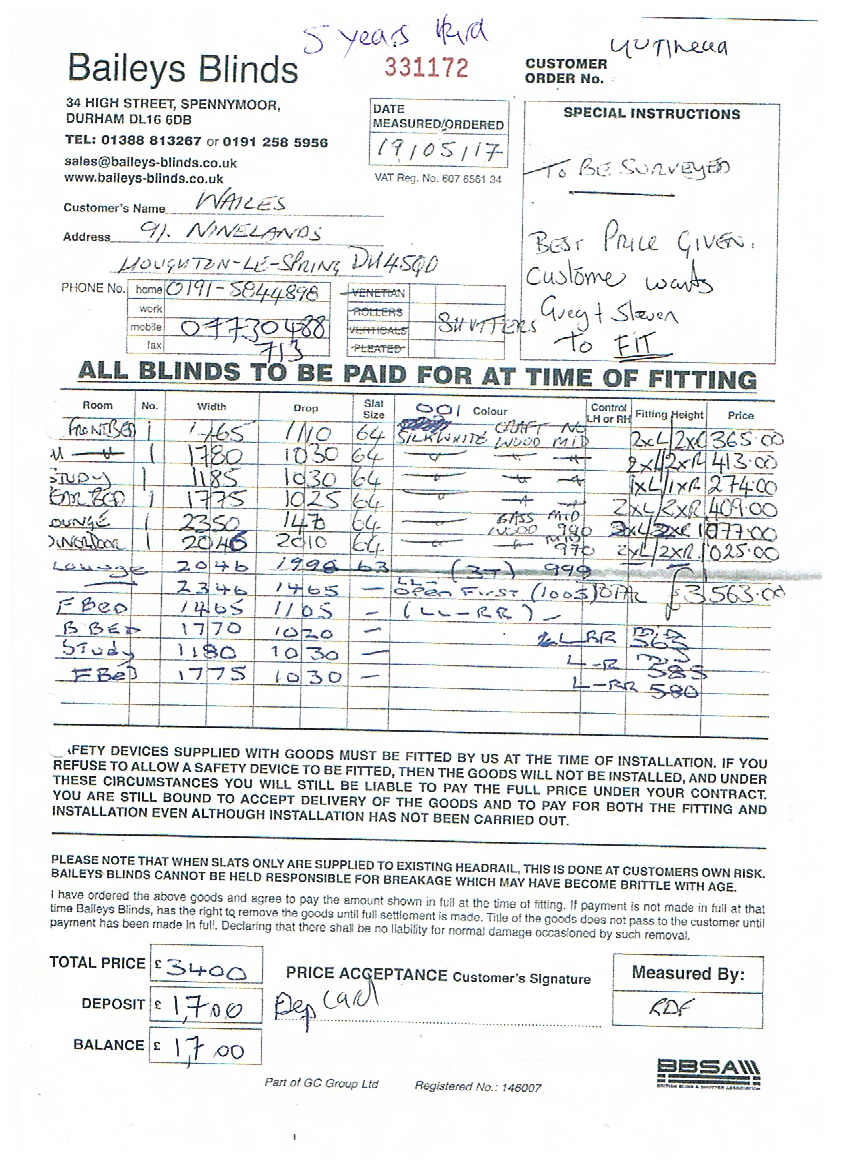 5 years
Baileys Blinds
331172
CUSTOMER
ORDER No.
34 HIGH STREET, SPENNYMOOR,
DURHAM DL16 6DB
TEL: 01388 813267 or 0191 258 5956
sales@baileys-blinds.co.uk
www.baileys-blinds.co.uk
DATE
MEASURED/ORDERED
19/05/17
VAT Reg. No. 607 6561 34
SPECIAL INSTRUCTIONS
TO BE SURVEYED
BEST PRICE GIVEN.
Custome wants
Greg + Steven
To FIT
Customer's Name WAILES
Address 91. NINELANDS
HOUGHTON-LE-SPRING DH45QD
PHONE No. home 0191-5844898
work
mobile 07730488
fax 713
VENETIAN
ROLLERS
VERTICALS
PLEATED
SHUTTERS
ALL BLINDS TO BE PAID FOR AT TIME OF FITTING
Room No. Width Drop Slat Size 001 Colour Control LH or RH Fitting Height Price
FRONTBED 1 1765 1110 64 SILKWHITE CRAFT WOOD MID 2xL/2xR 365.00
1 1780 1030 64 2xL/2xR 413.00
STUDY 1 1185 1030 64 1xL/1xR 274.00
EAR BED 1 1775 1025 64 2xL/2xR 409.00
OUNGE 1 2350 147 64 MID 2xR 1077.00
1 2046 2010 64 MID 970 2xL/2xR 1025.00
Lounge 2046 1998 63 (3T) 999
2346 1465 - LL- Open First (1003) £3,563.00
F BED 1465 1105 - (LL-RR) -
B BED 1770 1020 - L RR MID 565
Study 1180 1030 - L-R MID 585
F BED 1775 1030 - L-RR 580
AFETY DEVICES SUPPLIED WITH GOODS MUST BE FITTED BY US AT THE TIME OF INSTALLATION. IF YOU
REFUSE TO ALLOW A SAFETY DEVICE TO BE FITTED, THEN THE GOODS WILL NOT BE INSTALLED, AND UNDER
THESE CIRCUMSTANCES YOU WILL STILL BE LIABLE TO PAY THE FULL PRICE UNDER YOUR CONTRACT.
YOU ARE STILL BOUND TO ACCEPT DELIVERY OF THE GOODS AND TO PAY FOR BOTH THE FITTING AND
INSTALLATION EVEN ALTHOUGH INSTALLATION HAS NOT BEEN CARRIED OUT.
PLEASE NOTE THAT WHEN SLATS ONLY ARE SUPPLIED TO EXISTING HEADRAIL, THIS IS DONE AT CUSTOMERS OWN RISK.
BAILEYS BLINDS CANNOT BE HELD RESPONSIBLE FOR BREAKAGE WHICH MAY HAVE BECOME BRITTLE WITH AGE.
I have ordered the above goods and agree to pay the amount shown in full at the time of fitting. If payment is not made in full at that
time Baileys Blinds, has the right to remove the goods until full settlement is made. Title of the goods does not pass to the customer until
payment has been made in full. Declaring that there shall be no liability for normal damage occasioned by such removal.
TOTAL PRICE £ 3400
PRICE ACCEPTANCE Customer's Signature
Measured By:
DEPOSIT £ 1,700
Dep Card
RDF
BALANCE £ 1,700
BBSA
BRITISH BLIND & SHUTTER ASSOCIATION
Part of GC Group Ltd Registered No.: 146007